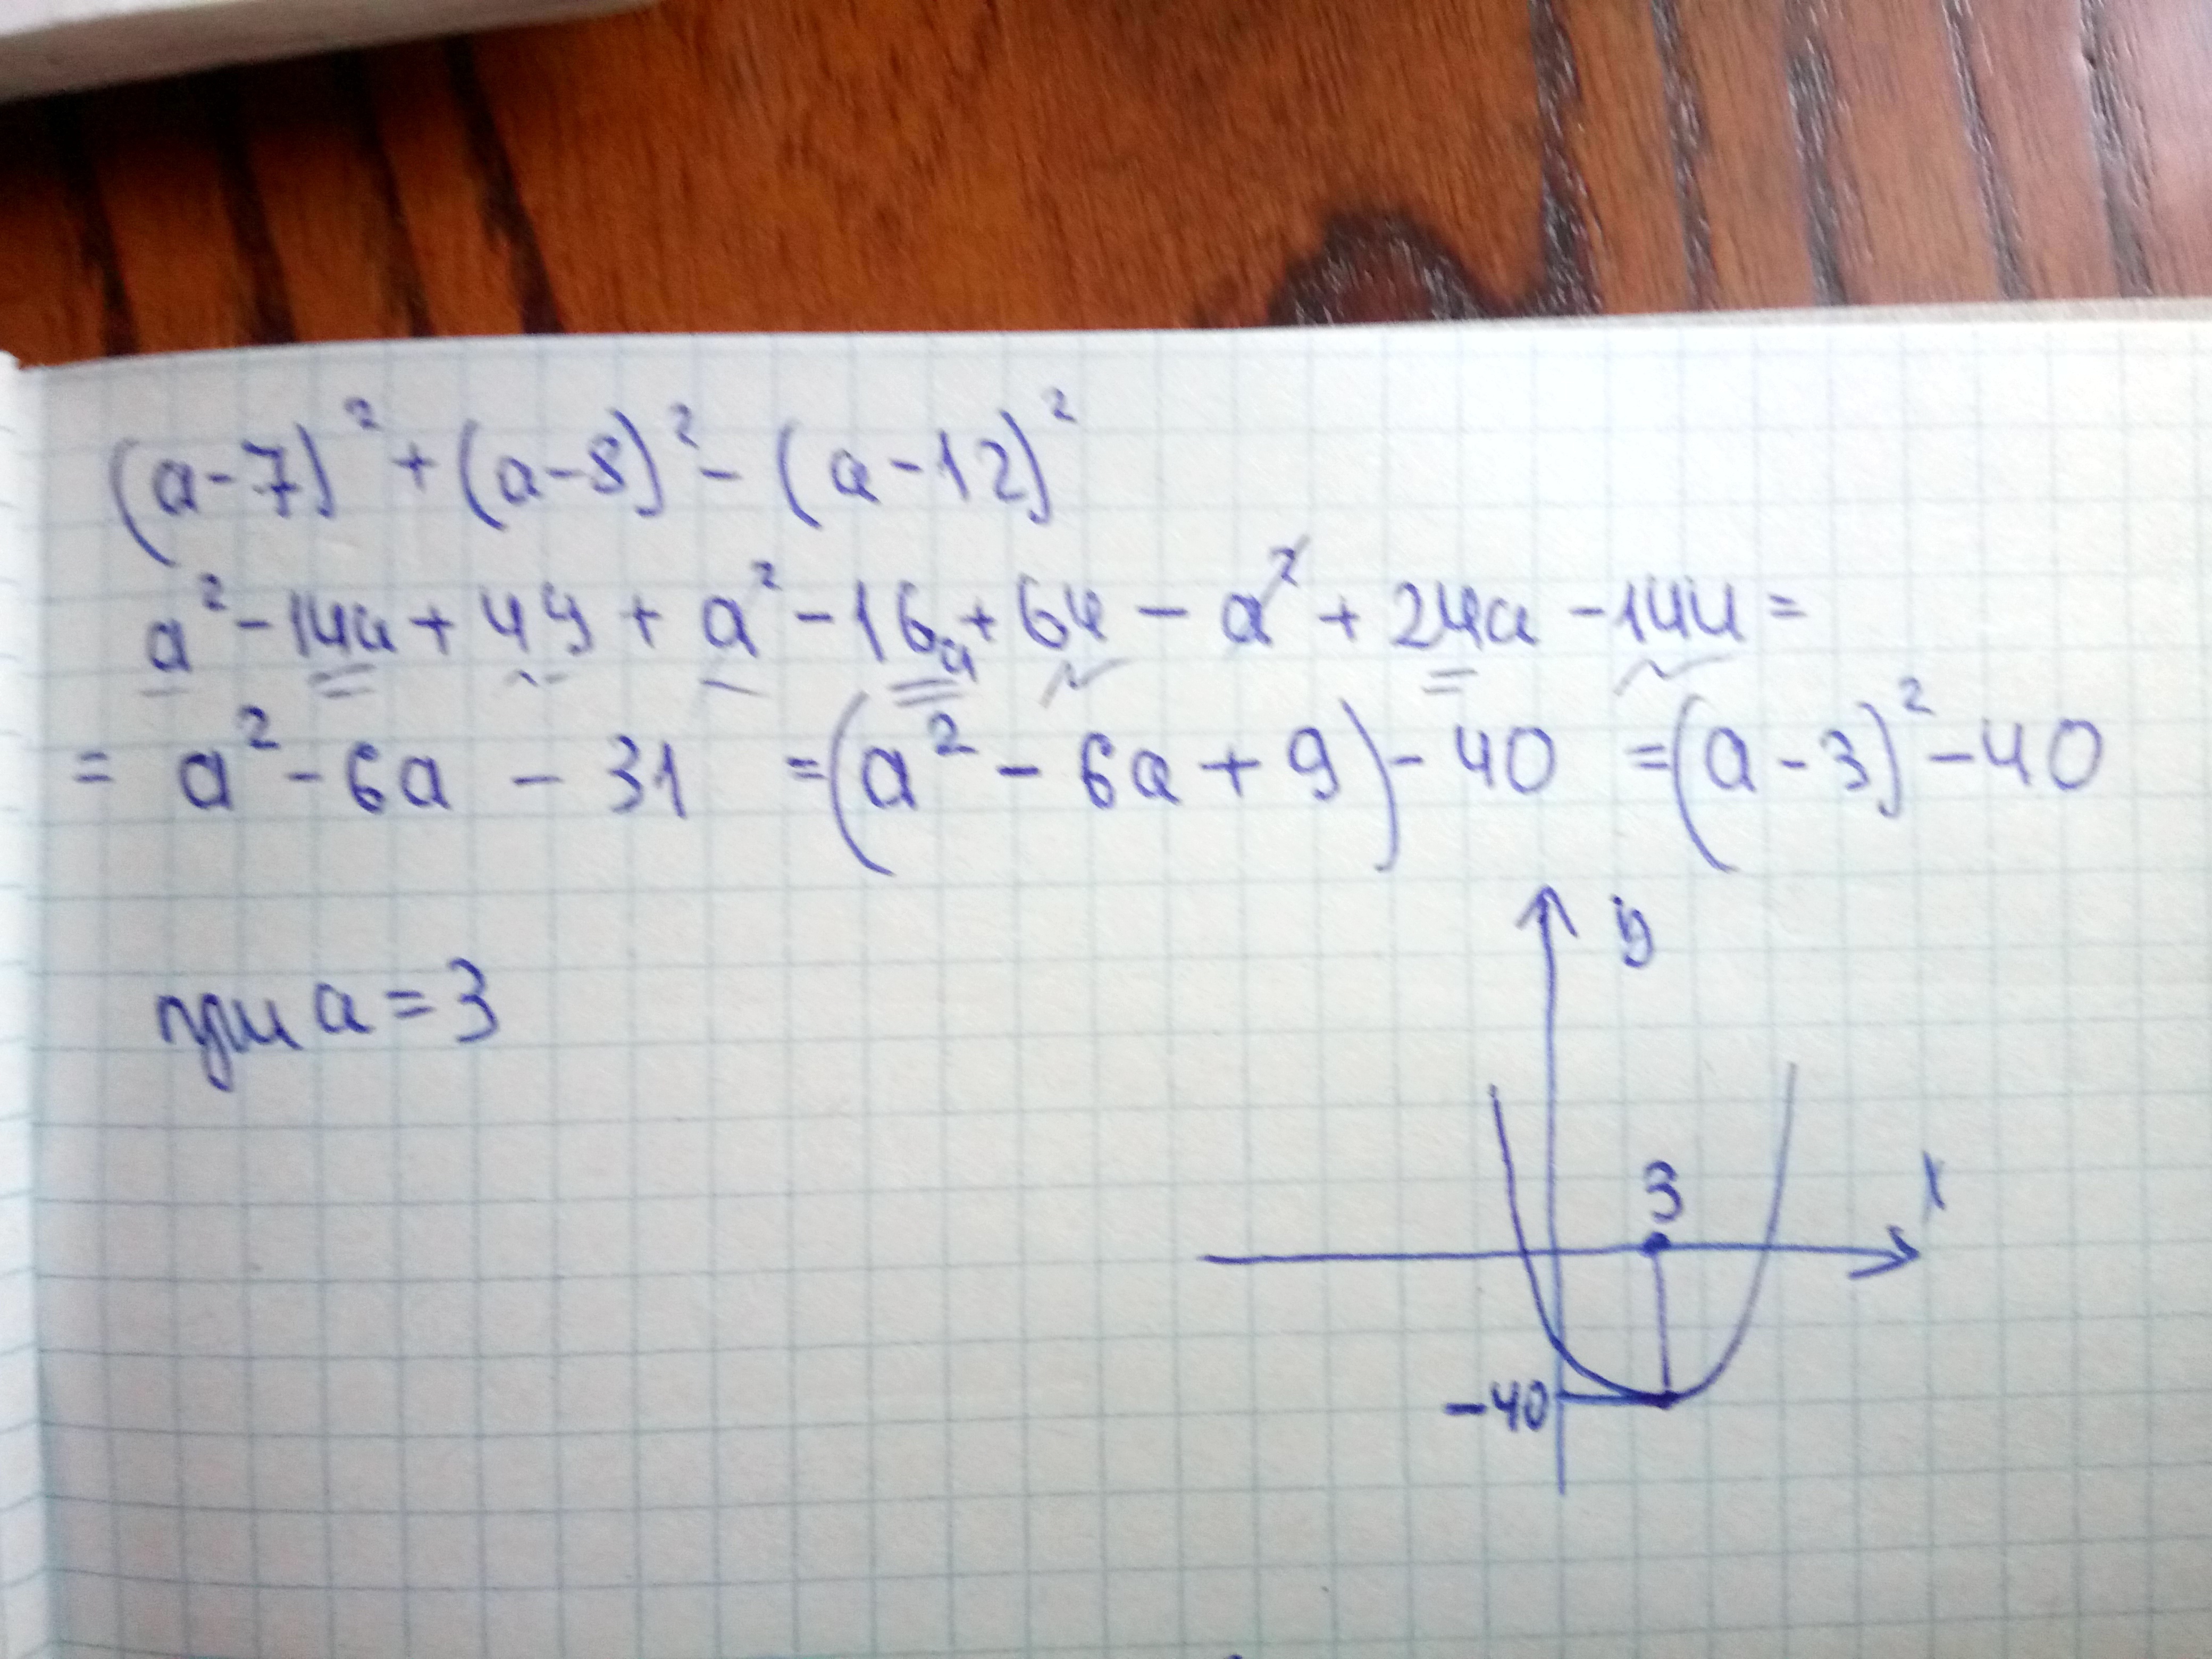 (a-7)² + (a-8)² - (a-12)²
a² - 14a + 49 + a² - 16a + 64 - a² + 24a - 144 =
= a² - 6a - 31 = (a² - 6a + 9) - 40 = (a - 3)² - 40
y
при a = 3
3
x
-40